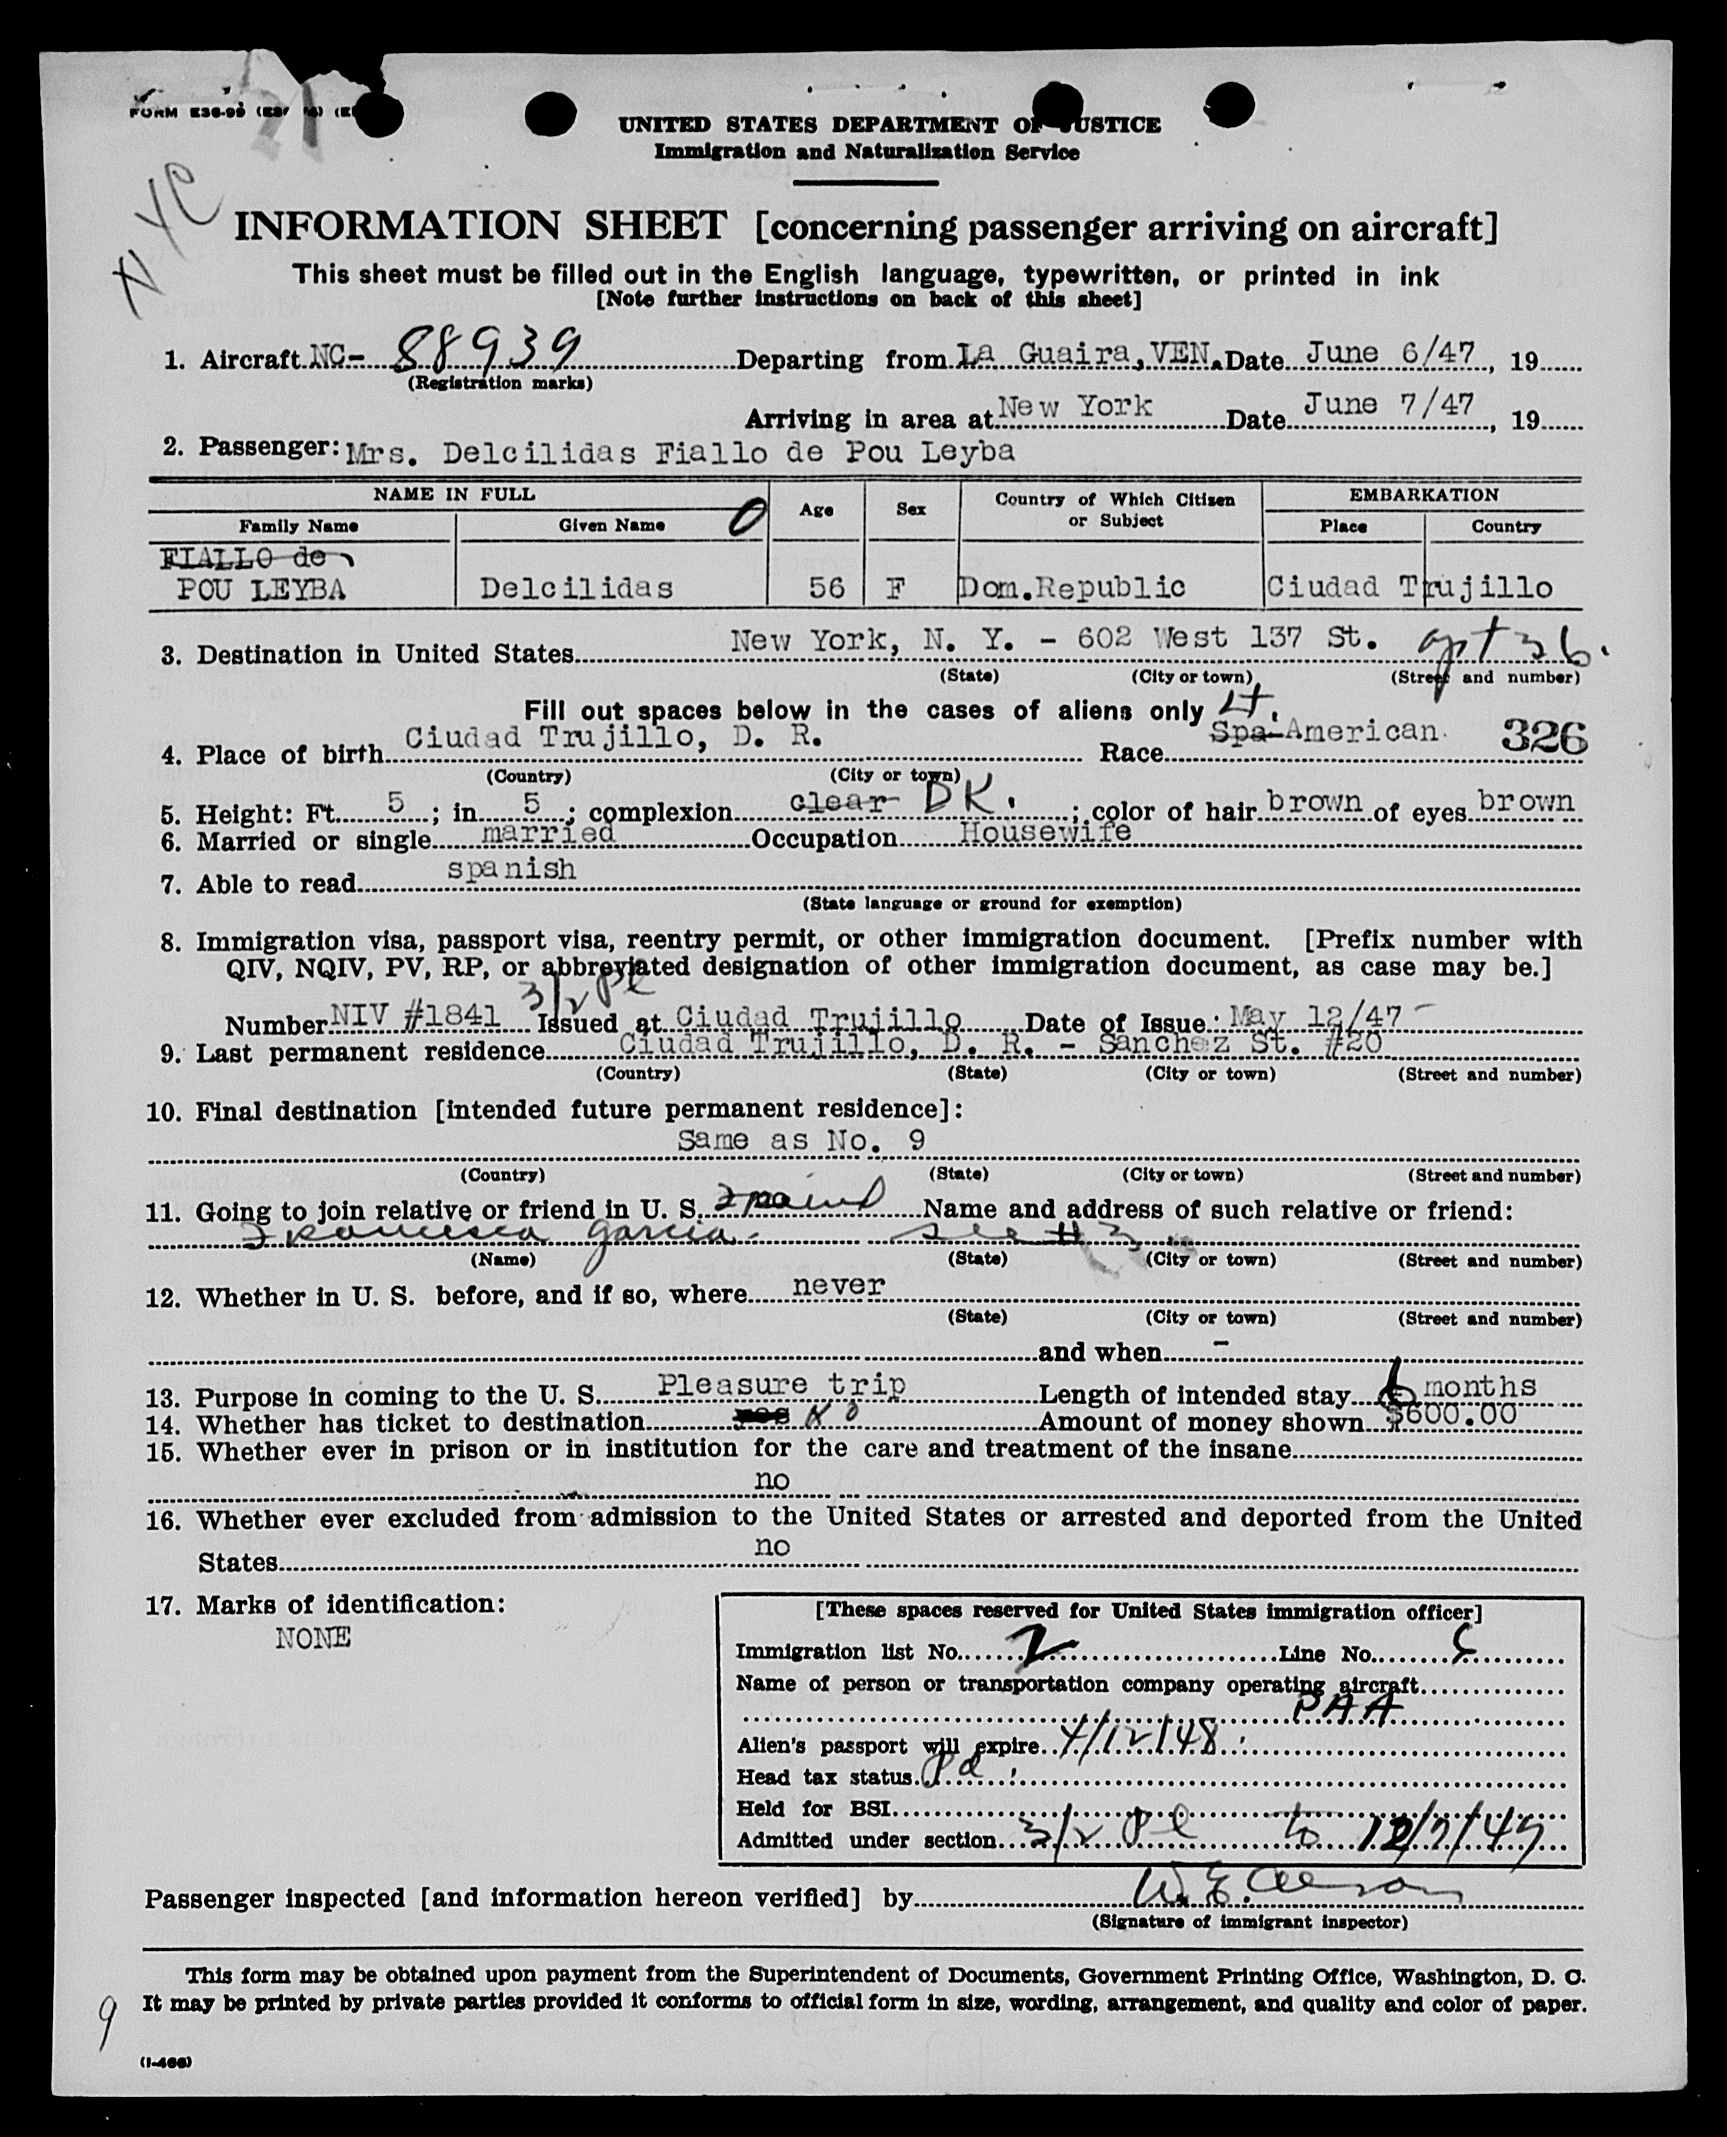 FORM E36-99
UNITED STATES DEPARTMENT OF JUSTICE
Immigration and Naturalization Service
NYC
INFORMATION SHEET [concerning passenger arriving on aircraft]
This sheet must be filled out in the English language, typewritten, or printed in ink
[Note further instructions on back of this sheet]
1. Aircraft NC- 88939 Departing from La Guaira, VEN. Date June 6/47, 19
(Registration marks)
Arriving in area at New York Date June 7/47, 19
2. Passenger: Mrs. Delcilidas Fiallo de Pou Leyba
NAME IN FULL Age Sex Country of Which Citizen or Subject EMBARKATION
Family Name Given Name Place Country
FIALLO de
POU LEYBA Delcilidas 56 F Dom.Republic Ciudad Trujillo
3. Destination in United States New York, N. Y. - 602 West 137 St. apt 36.
(State) (City or town) (Street and number)
Fill out spaces below in the cases of aliens only
4. Place of birth Ciudad Trujillo, D. R. Race Spa-American 326
(Country) (City or town)
5. Height: Ft. 5; in. 5; complexion clear DK.; color of hair brown of eyes brown
6. Married or single married Occupation Housewife
7. Able to read spanish
(State language or ground for exemption)
8. Immigration visa, passport visa, reentry permit, or other immigration document. [Prefix number with
QIV, NQIV, PV, RP, or abbreviated designation of other immigration document, as case may be.]
3/2 Pl
Number NIV #1841 Issued at Ciudad Trujillo Date of Issue: May 12/47
9. Last permanent residence Ciudad Trujillo, D. R. - Sanchez St. #20
(Country) (State) (City or town) (Street and number)
10. Final destination [intended future permanent residence]:
Same as No. 9
(Country) (State) (City or town) (Street and number)
11. Going to join relative or friend in U. S. Friend Name and address of such relative or friend:
Francisca Garcia. see #3
(Name) (State) (City or town) (Street and number)
12. Whether in U. S. before, and if so, where never
(State) (City or town) (Street and number)
and when -
13. Purpose in coming to the U. S. Pleasure trip Length of intended stay 6 months
14. Whether has ticket to destination yes No Amount of money shown $600.00
15. Whether ever in prison or in institution for the care and treatment of the insane
no
16. Whether ever excluded from admission to the United States or arrested and deported from the United
States no
17. Marks of identification:
NONE
[These spaces reserved for United States immigration officer]
Immigration list No. 2 Line No.
Name of person or transportation company operating aircraft
PAA
Alien's passport will expire 4/12/48
Head tax status Pd
Held for BSI
Admitted under section 3/2 Pl to 12/7/47
Passenger inspected [and information hereon verified] by
(Signature of immigrant inspector)
This form may be obtained upon payment from the Superintendent of Documents, Government Printing Office, Washington, D. C.
It may be printed by private parties provided it conforms to official form in size, wording, arrangement, and quality and color of paper.
9
(I-466)